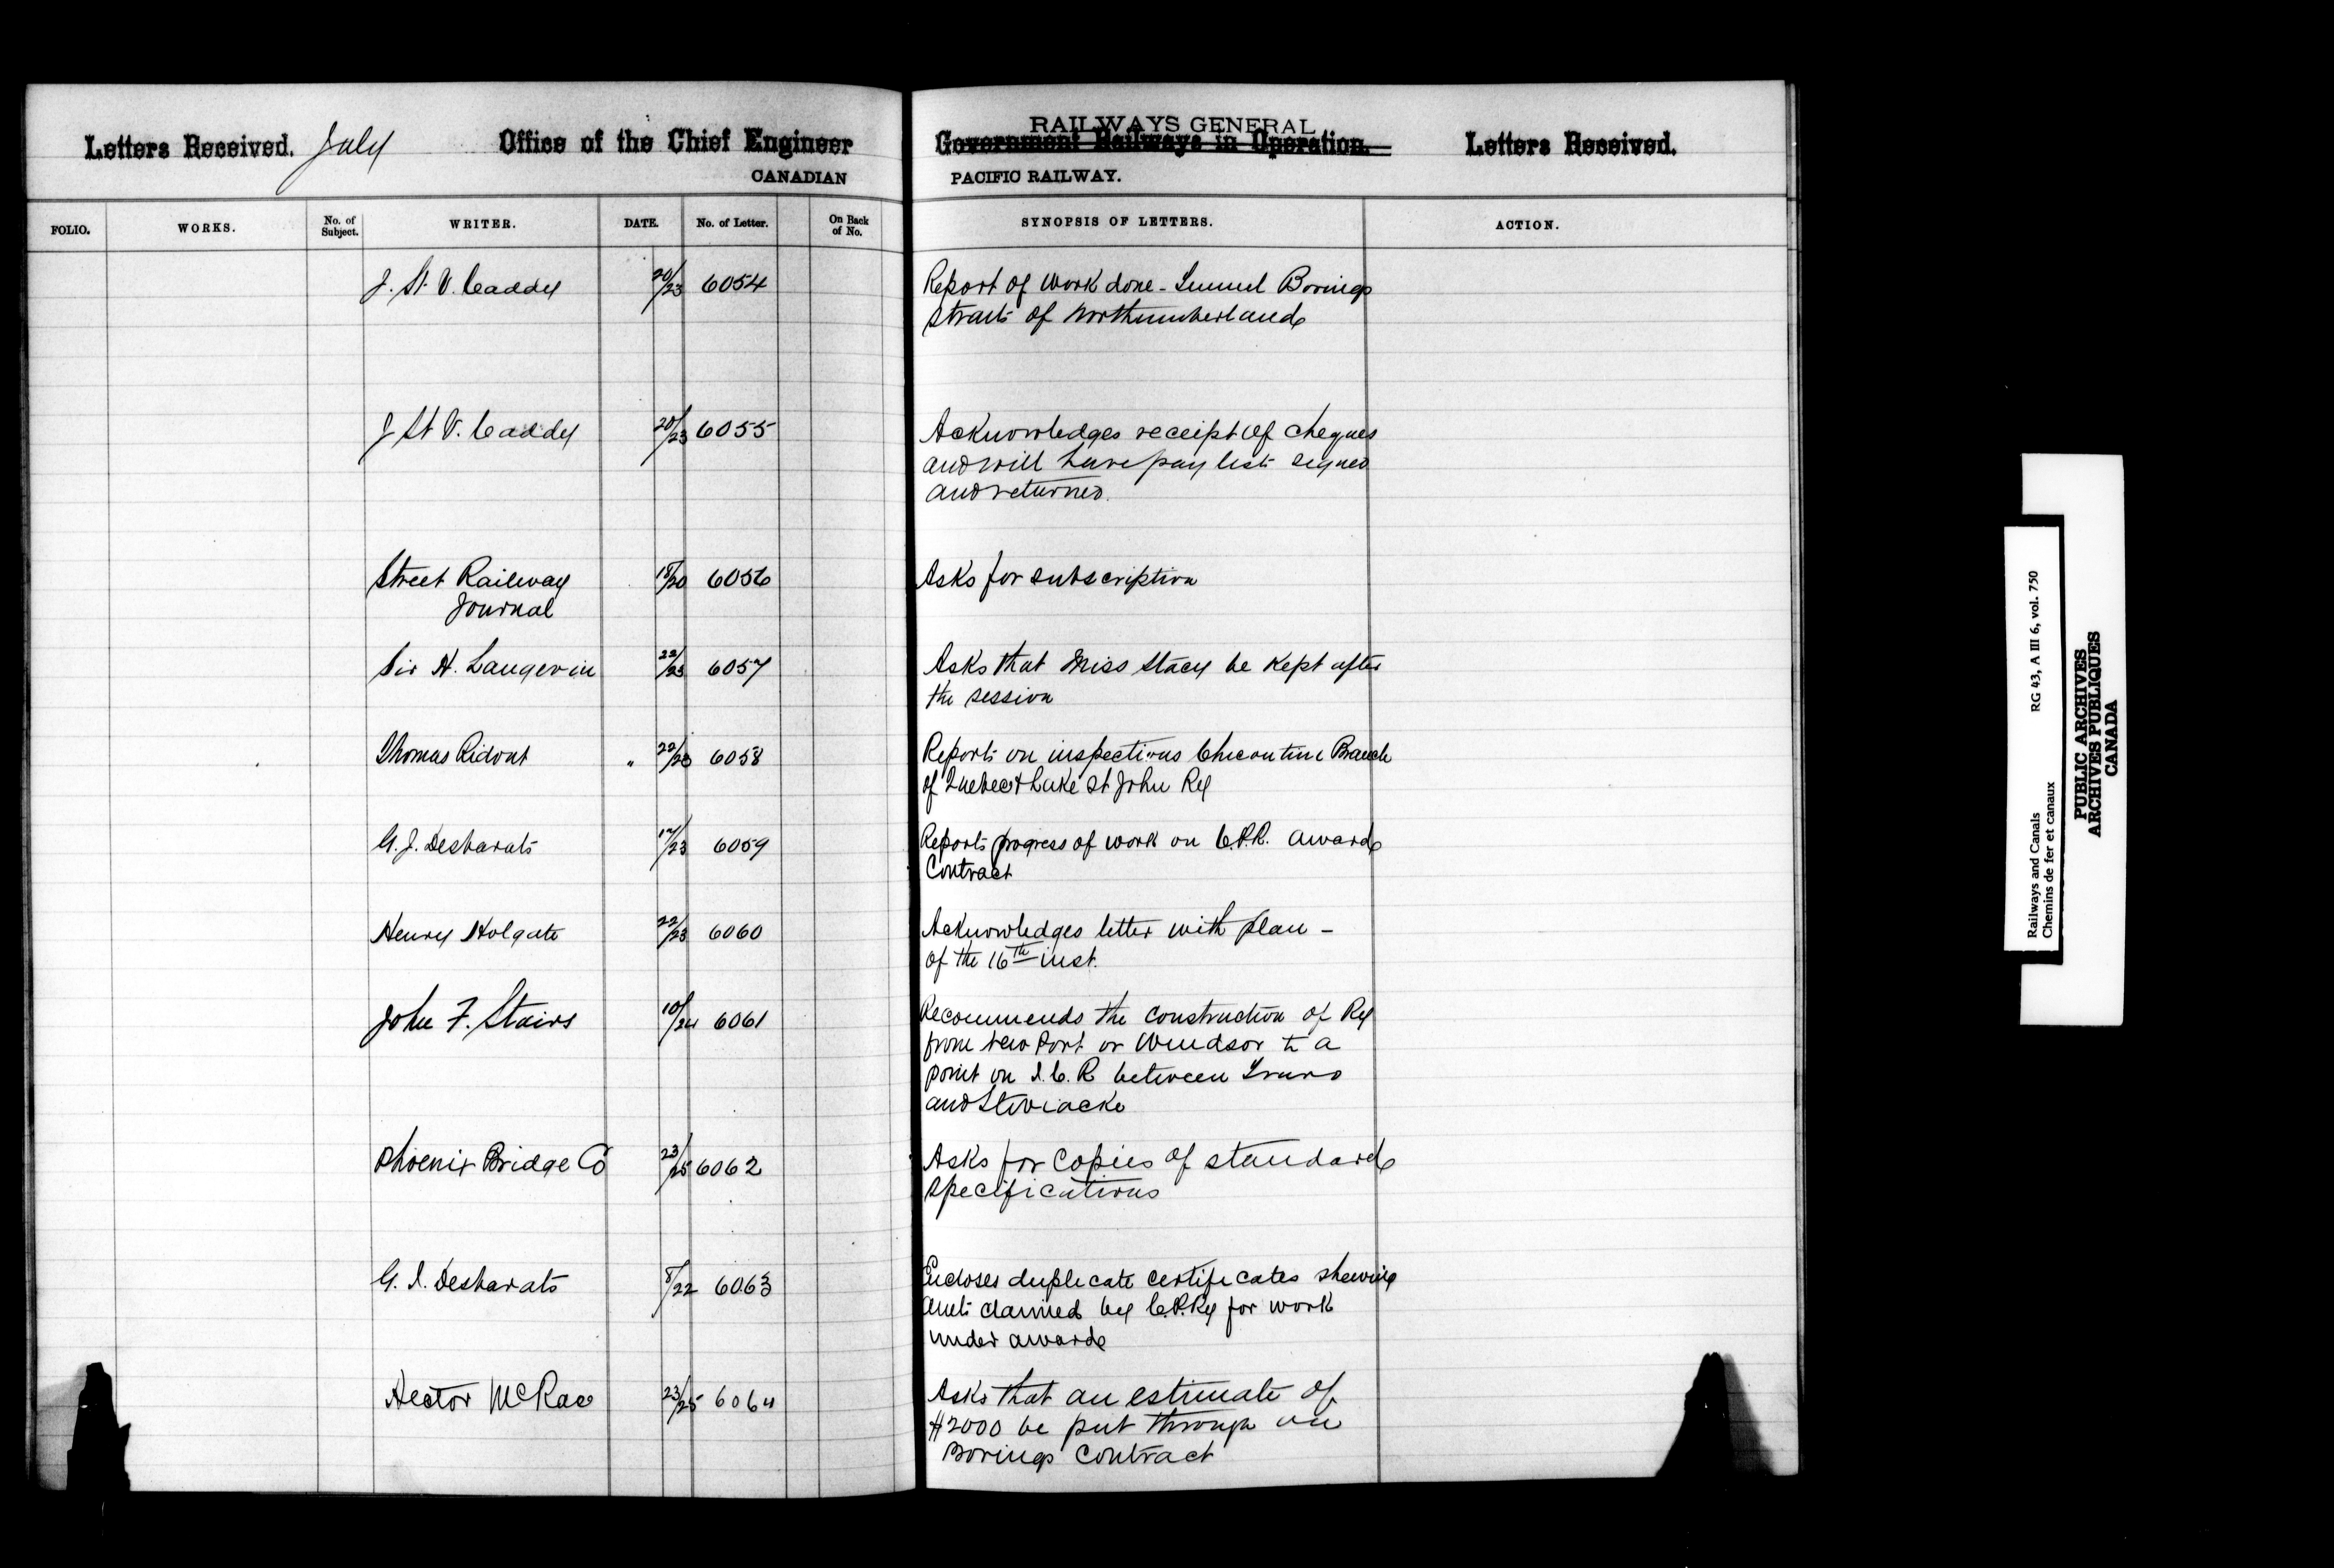 Letters Received. July Office of the Chief Engineer
CANADIAN
RAILWAYS GENERAL
Government Railways in Operation. Letters Received.
PACIFIC RAILWAY.
FOLIO. WORKS. No. of Subject. WRITER. DATE. No. of Letter. On Back of No. SYNOPSIS OF LETTERS. ACTION.
J. St. V. Caddy 20/23 6054 Report of Work done - Tunnel Borings
Straits of Northumberland
J St V. Caddy 20/23 6055 Acknowledges receipt of cheques
and will have pay lists signed
and returned.
Street Railway 18/20 6056 Asks for subscription
Journal
Sir H. Langevin 22/23 6057 Asks that Miss Stacy be kept after
the session
Thomas Ridout " 22/23 6058 Reports on inspections Chicoutimi Branch
of Quebec & Lake St John Ry
G. J. Desbarats 17/23 6059 Reports progress of work on C.P.R. award
Contract
Henry Holgate 22/23 6060 Acknowledges letter with plan -
of the 16th inst.
John F. Stairs 10/24 6061 Recommends the construction of Ry
from New Port or Windsor to a
point on I.C.R between Truro
and Stewiacke
Phoenix Bridge Co 23/25 6062 Asks for Copies of standard
specifications
G. J. Desbarats 8/22 6063 Encloses duplicate certificates shewing
amts claimed by C.P.Ry for work
under award
Hector McRae 23/25 6064 Asks that an estimate of
$2000 be put through on
Borings Contract
Railways and Canals RG 43, A III 6, vol. 750
Chemins de fer et canaux
PUBLIC ARCHIVES
ARCHIVES PUBLIQUES
CANADA